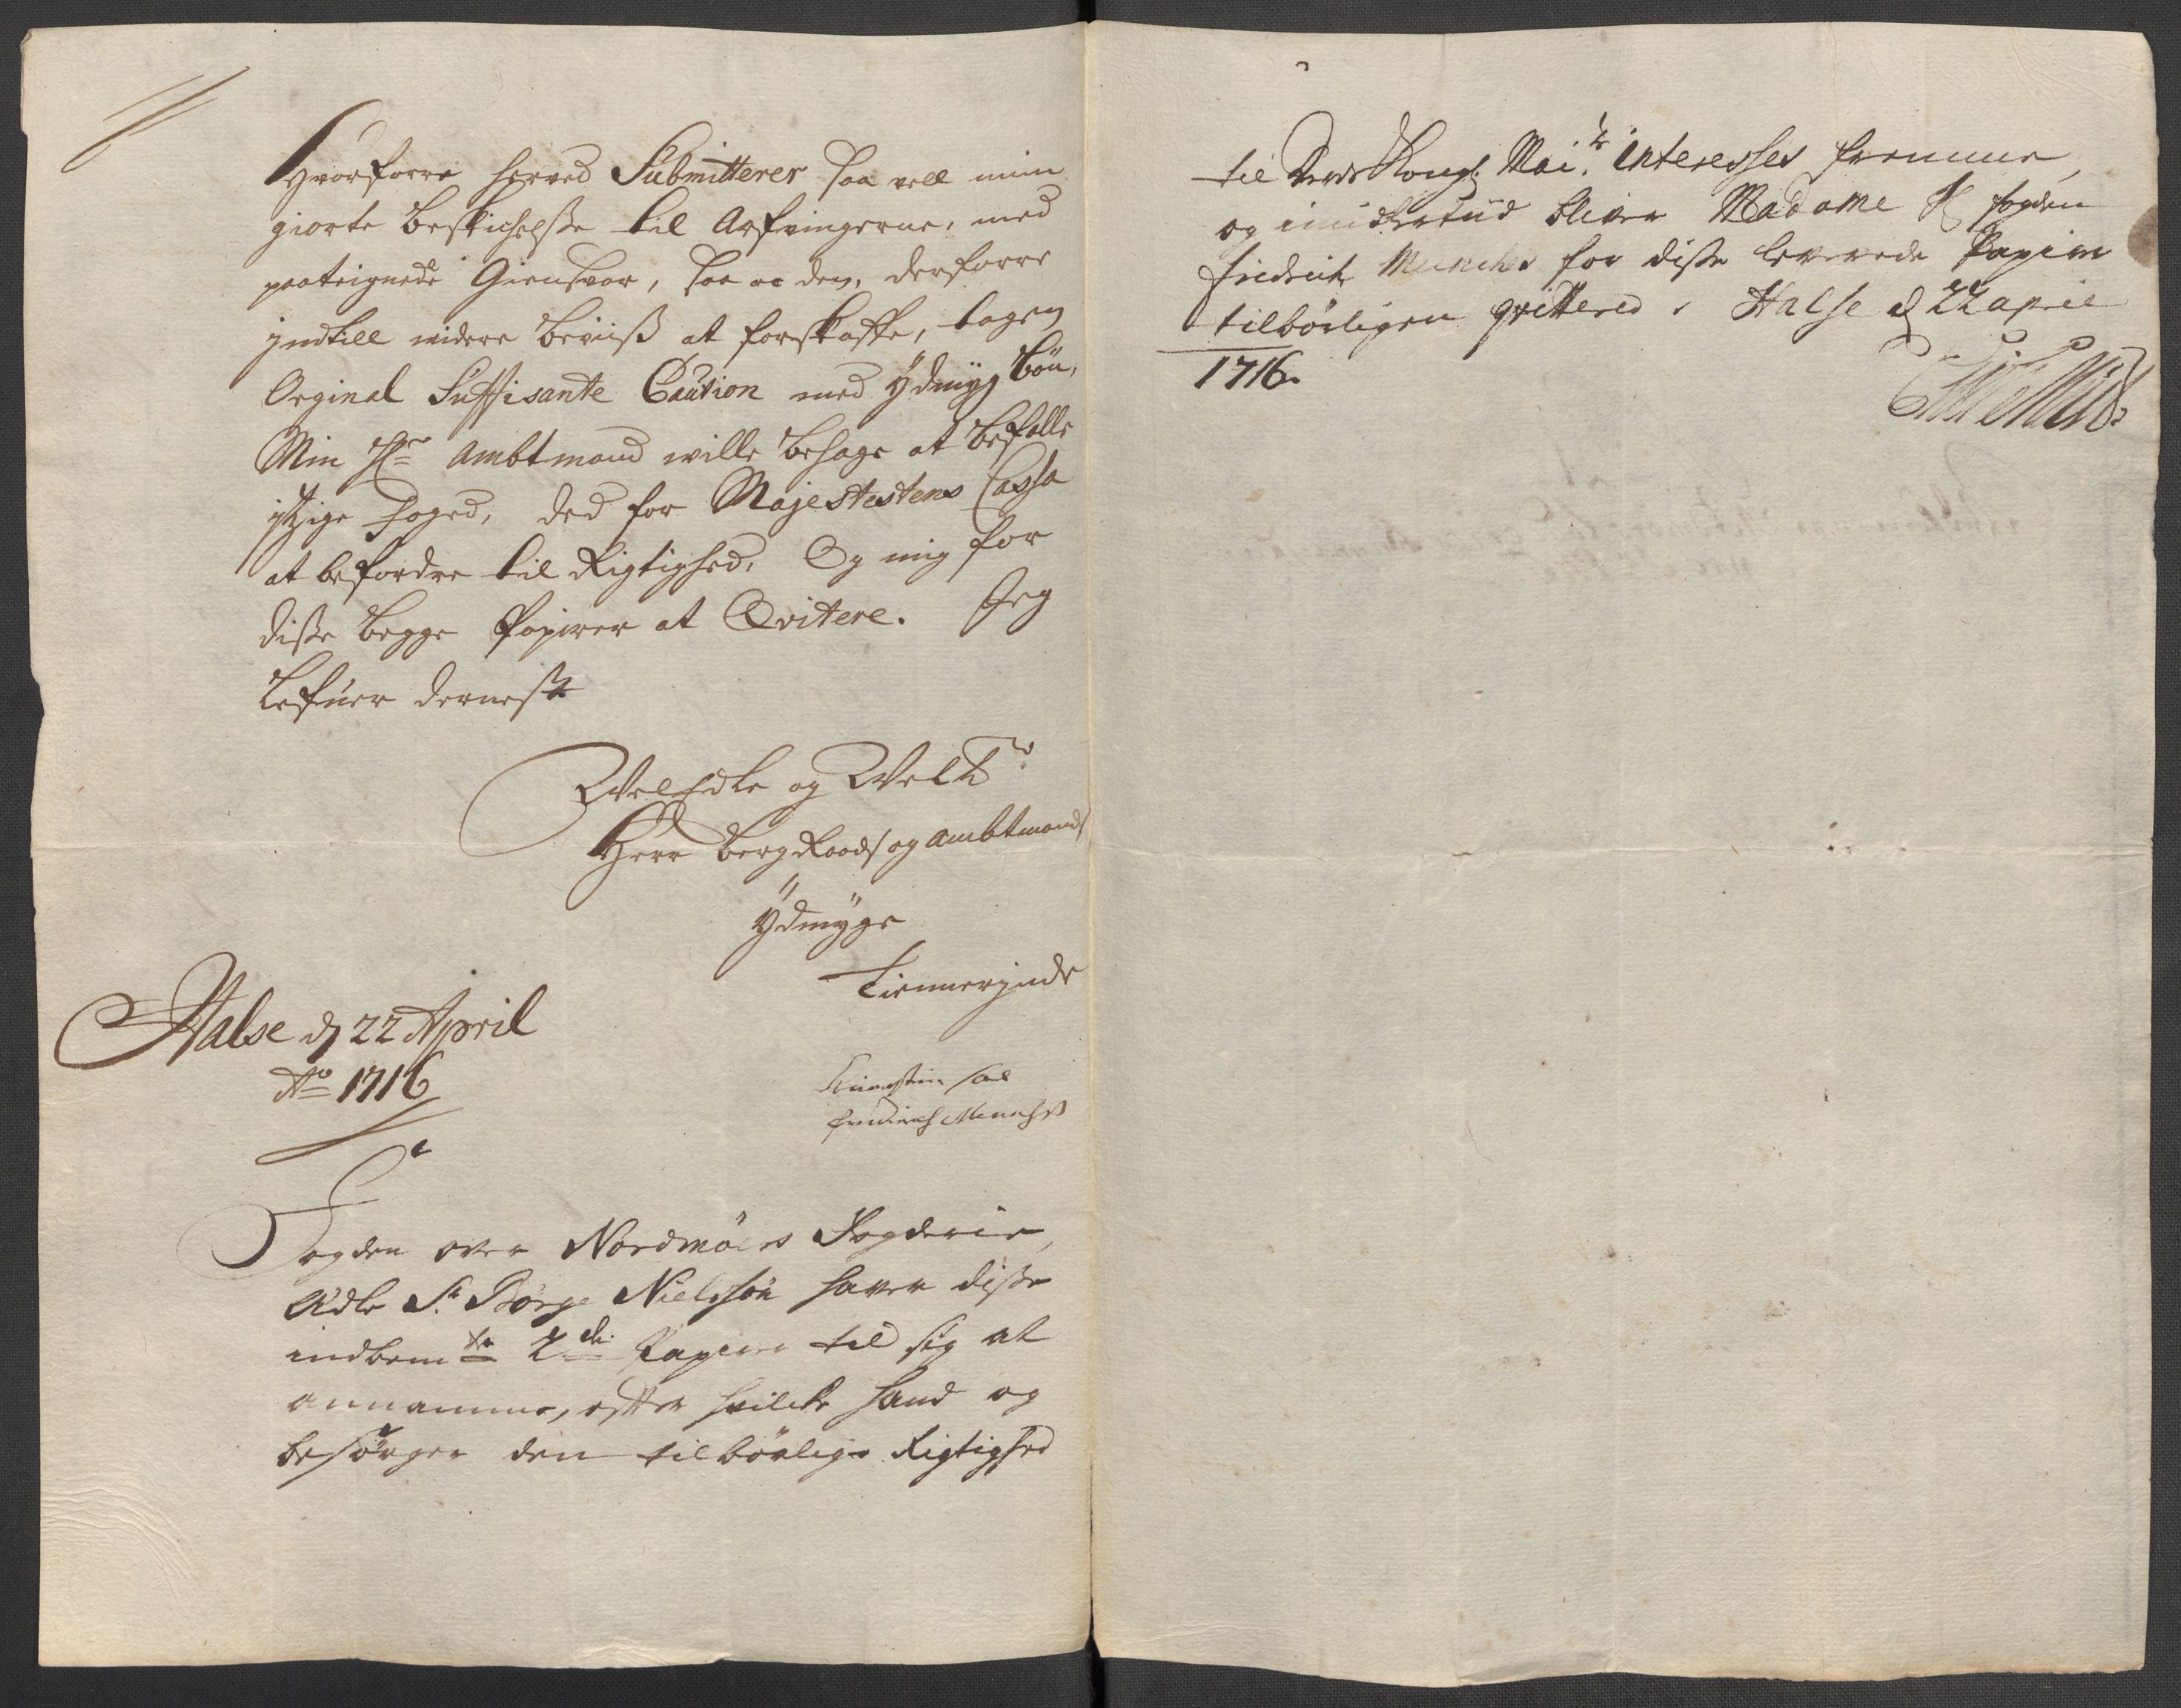 Hvorforre herved Submitterer saa vell min
giorte beskichelse til Arfvingerne, med
paateignede Giensvar, saa oc den, derforre
indtill videre beviiss at forskaffe, tagen
Orginal Suffisante Caution med ÿdmÿg bön,
Min Hr Ambtmand wille behage at befalle
ittzige foged, ded for Majestetens Cassa
at befordre til Rigtighed, Og mig for
disse begge Papirer at Qvitere. Jeg
lefuer dernest
WelEdle og Welbr
Herr bergRaads og Ambtmands
Ydmÿge
Tiennerjnde
Halse d 22 April
Ao 1716
Sal
Friderich Munchs
Fogden over Nordmöers Fogderie,
Ædle Sr Börge Nielssön haver disse
indbemte 2de Papirer til sig at
annamme, efter hvilcke hand og
besörger den tilbörlige Rigtighed
til Deris Kongl. Mai.ts Interesses fremme,
og imidlertiid bliver Madame Sl fogden
Fridrich Munches for disse leverede Papirer
tilbörligen qvittered. Halse d 22 april
1716.